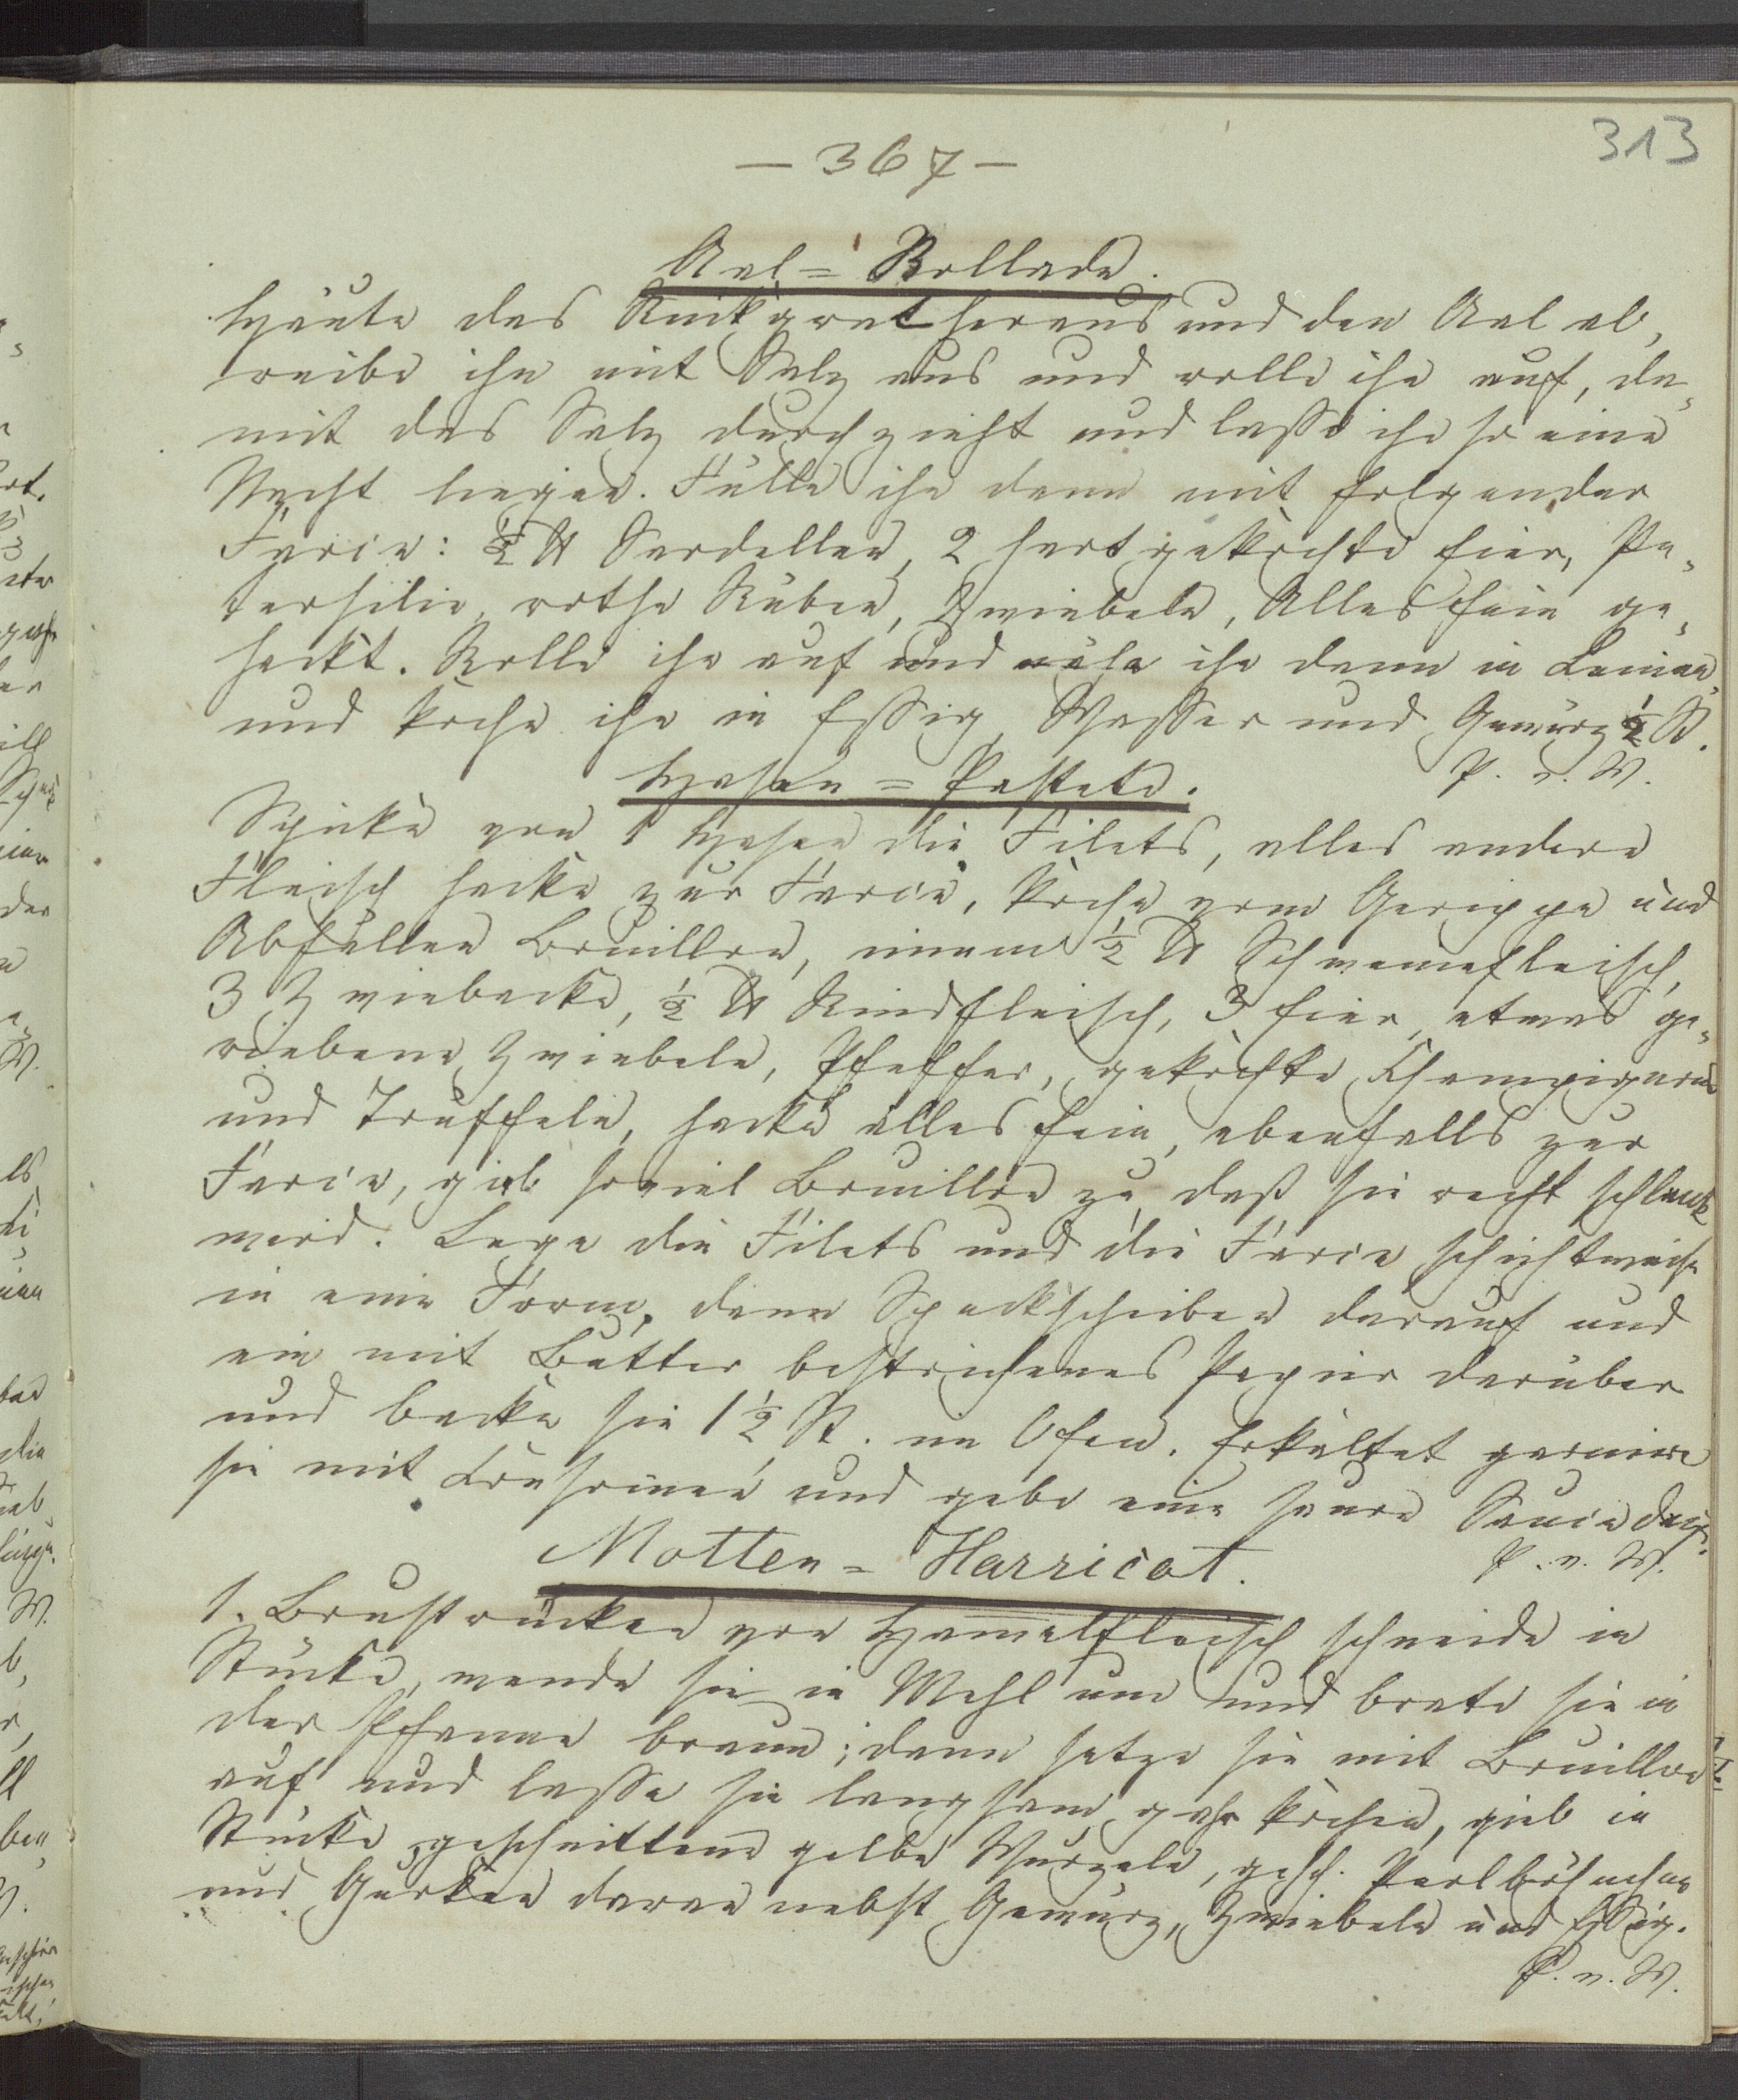 313
— 367 —
Aal=Rollade.
Häute das Rückgrat heraus und den Aal ab,
reibe ihn mit Salz aus und rolle ihn auf, da¬
mit das Salz durchzieht und lasse ihn so eine
Nacht liegen. Fülle ihn dann mit folgender
Farce: ½ ℔ Sardellen, 2 hart gekochte Eier, Pe¬
tersilie, rothe Rüben, Zwiebeln, Alles fein ge¬
hackt. Rolle ihn auf und nähe ihn dann in Leinen
und koche ihn in Essig, Wasser und Gewürz ½ St.
P. v. W.
Hasen=Pastete.
Spicke von 1 Hasen die Filets, alles andere
Fleisch hacke zur Farce, koche vom Gerippe und
Abfällen Bouillon, nimm ½ ℔ Schweinefleisch,
3 Zwiebacke, ½ ℔ Rindfleisch, 3 Eier, etwas ge¬
riebene Zwiebeln, Pfeffer, gekochte Champignons
und Trüffeln, hacke alles fein, ebenfalls zur
Farce, gieb soviel Bouillon zu, daß sie recht schlank
wird. Lege die Filets und die Farce schichtweise
in eine Form, dann Speckscheiben darauf und
ein mit Butter bestrichenes Papier darüber
und backe sie 1½ St. im Ofen. Erkaltet garnire
sie mit Consommé und gebe eine saure Sauce dazu.
P. v. W.
Motten=Harricot.
1. Brustrücken von Hamelfleisch schneide in
Stücke, wende sie in Mehl um und brate sie in
der Pfanne braun; dann setze sie mit Bouillon
auf und lasse sie langsam gahr kochen, gieb in
Stücke geschnittene gelbe Wurzeln, gesch. Perlböhnchen
und Gurken daran nebst Gewürz, Zwiebeln und Essig.
P. v. W.